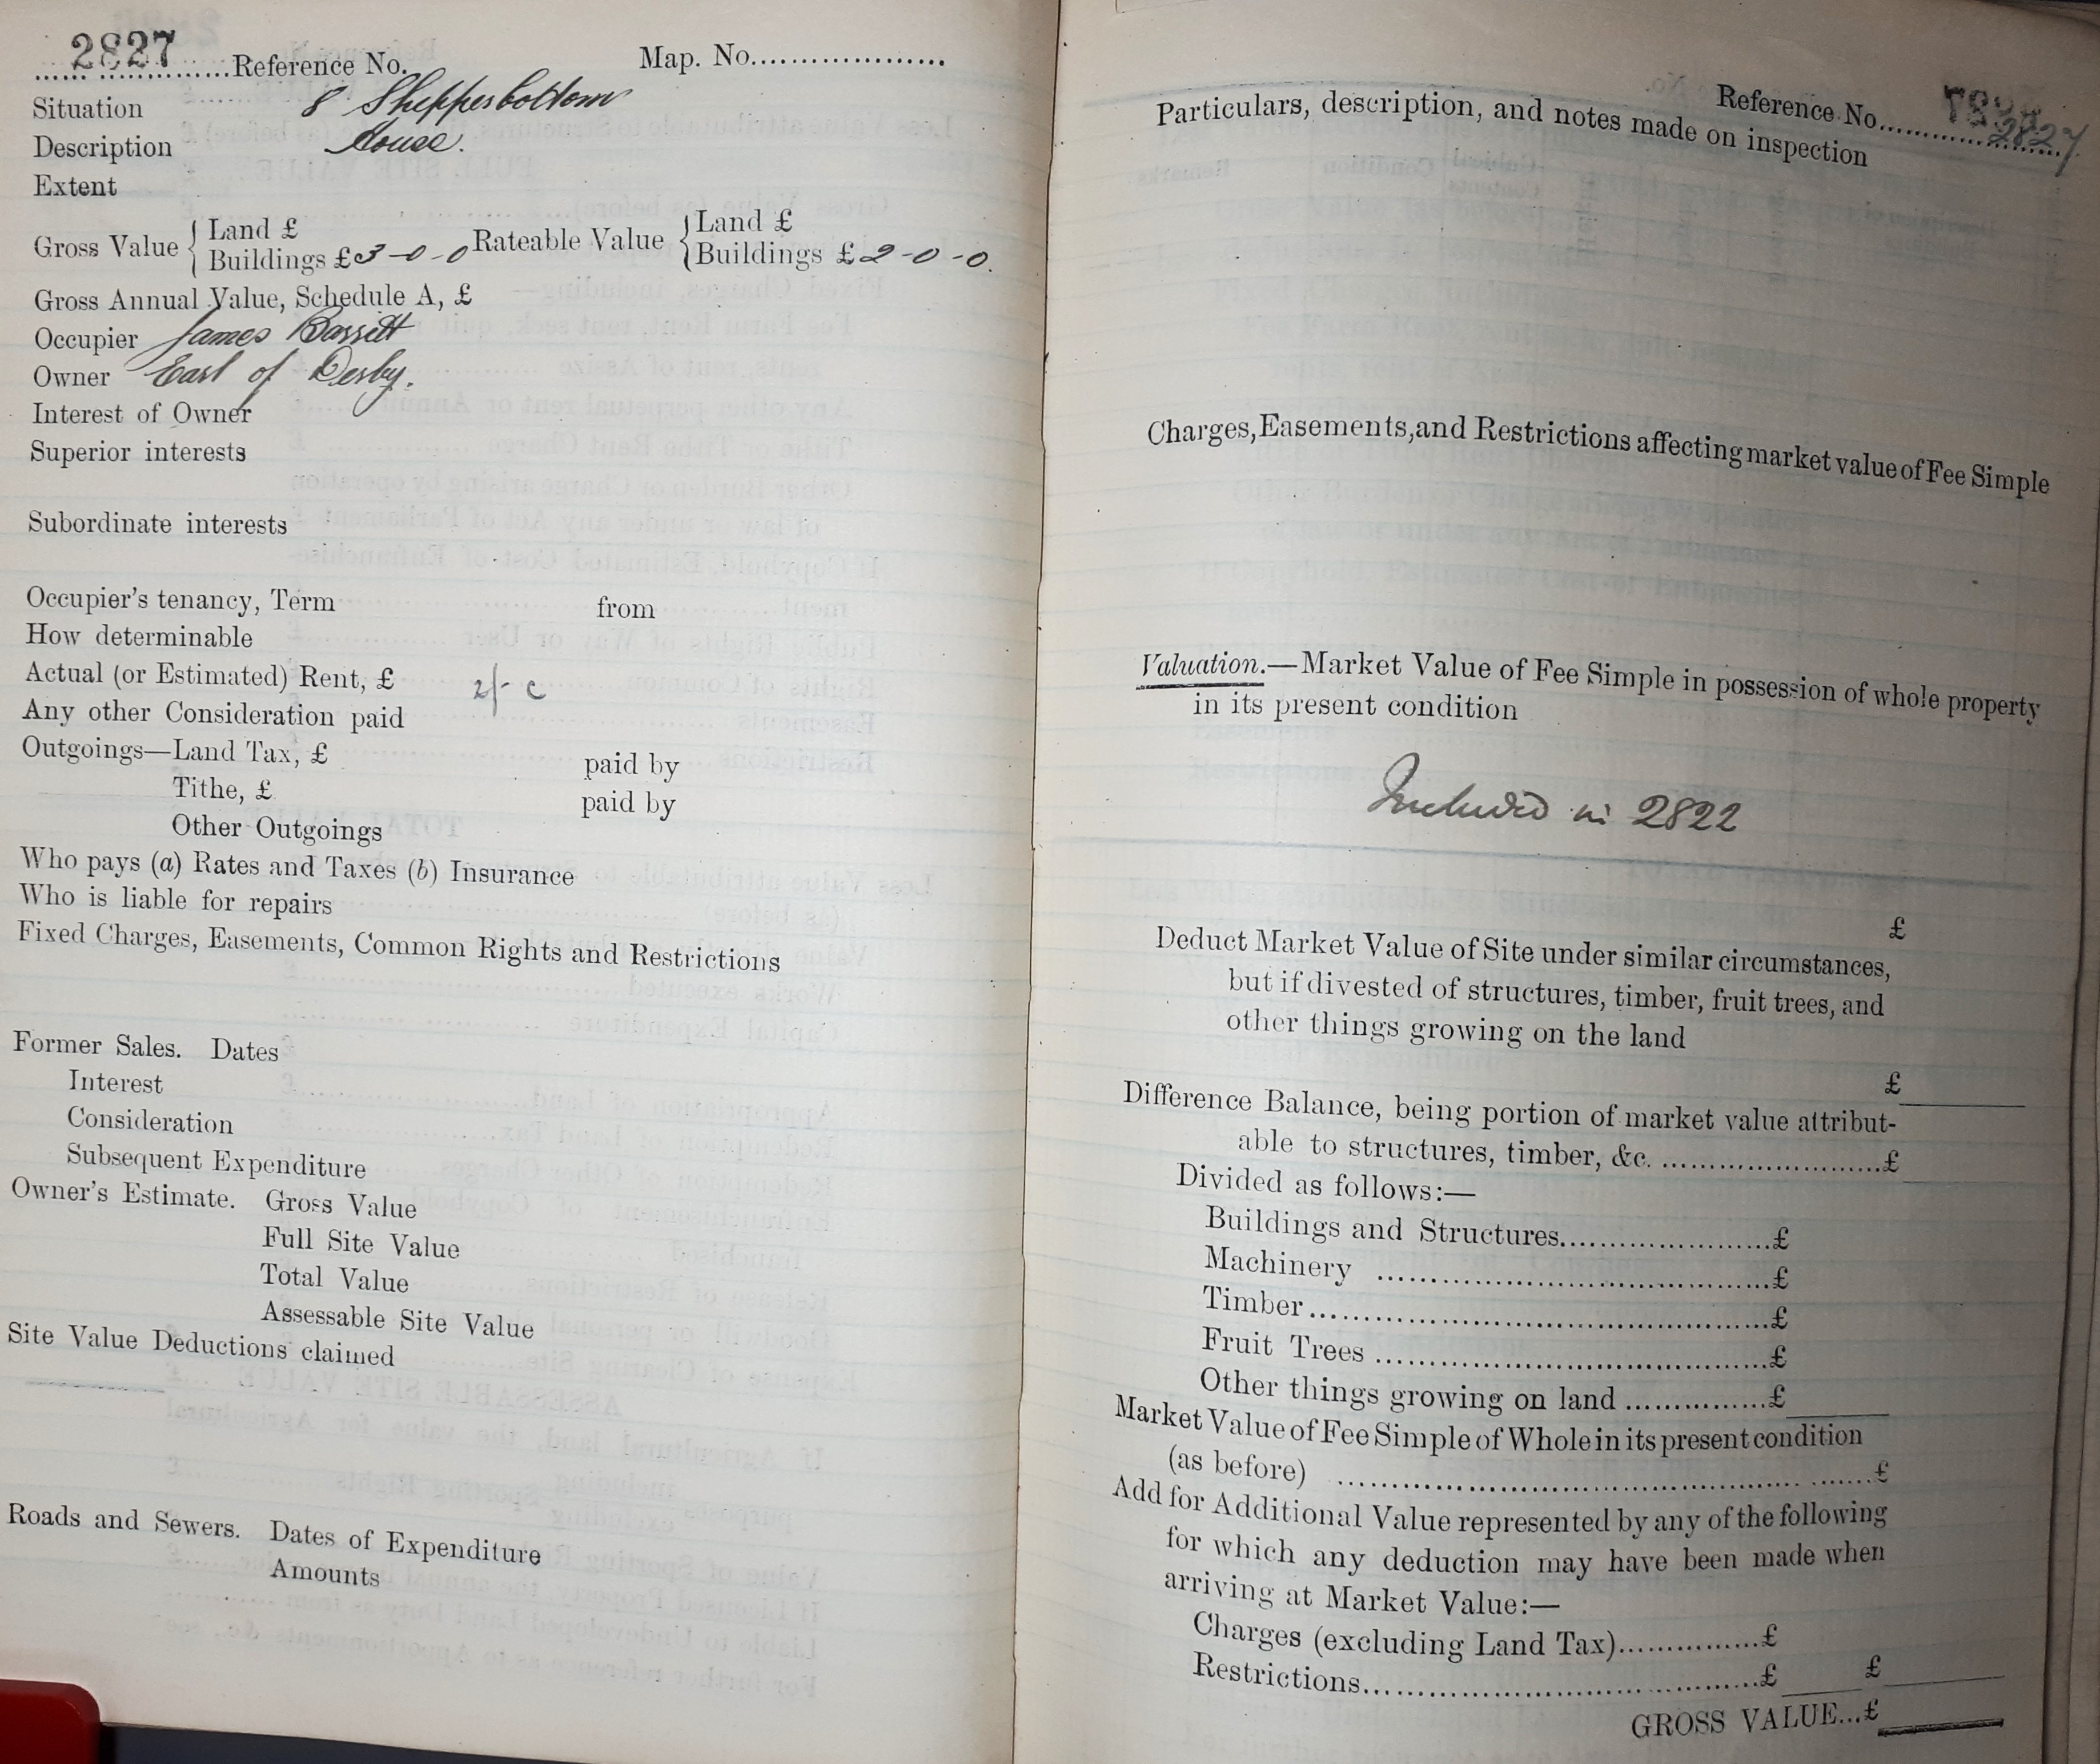 2827 Reference No. Map. No.
Situation 8 Shepperbottom
Description House.
Extent
Gross Value { Land £ Rateable Value { Land £
Buildings £3-0-0 Buildings £2-0-0.
Gross Annual Value, Schedule A, £
Occupier James Bassett
Owner Earl of Derby.
Interest of Owner
Superior interests
Subordinate interests
Occupier's tenancy, Term from
How determinable
Actual (or Estimated) Rent, £ 2/- c
Any other Consideration paid
Outgoings—Land Tax, £ paid by
Tithe, £ paid by
Other Outgoings
Who pays (a) Rates and Taxes (b) Insurance
Who is liable for repairs
Fixed Charges, Easements, Common Rights and Restrictions
Former Sales. Dates
Interest
Consideration
Subsequent Expenditure
Owner's Estimate. Gross Value
Full Site Value
Total Value
Assessable Site Value
Site Value Deductions claimed
Roads and Sewers. Dates of Expenditure
Amounts
Reference No. 2827
Particulars, description, and notes made on inspection
Charges, Easements, and Restrictions affecting market value of Fee Simple
Valuation.—Market Value of Fee Simple in possession of whole property
in its present condition
Included in 2822
£
Deduct Market Value of Site under similar circumstances,
but if divested of structures, timber, fruit trees, and
other things growing on the land
£
Difference Balance, being portion of market value attribut-
able to structures, timber, &c. £
Divided as follows:—
Buildings and Structures £
Machinery £
Timber £
Fruit Trees £
Other things growing on land £
Market Value of Fee Simple of Whole in its present condition
(as before) £
Add for Additional Value represented by any of the following
for which any deduction may have been made when
arriving at Market Value:—
Charges (excluding Land Tax) £
Restrictions £ £
GROSS VALUE...£